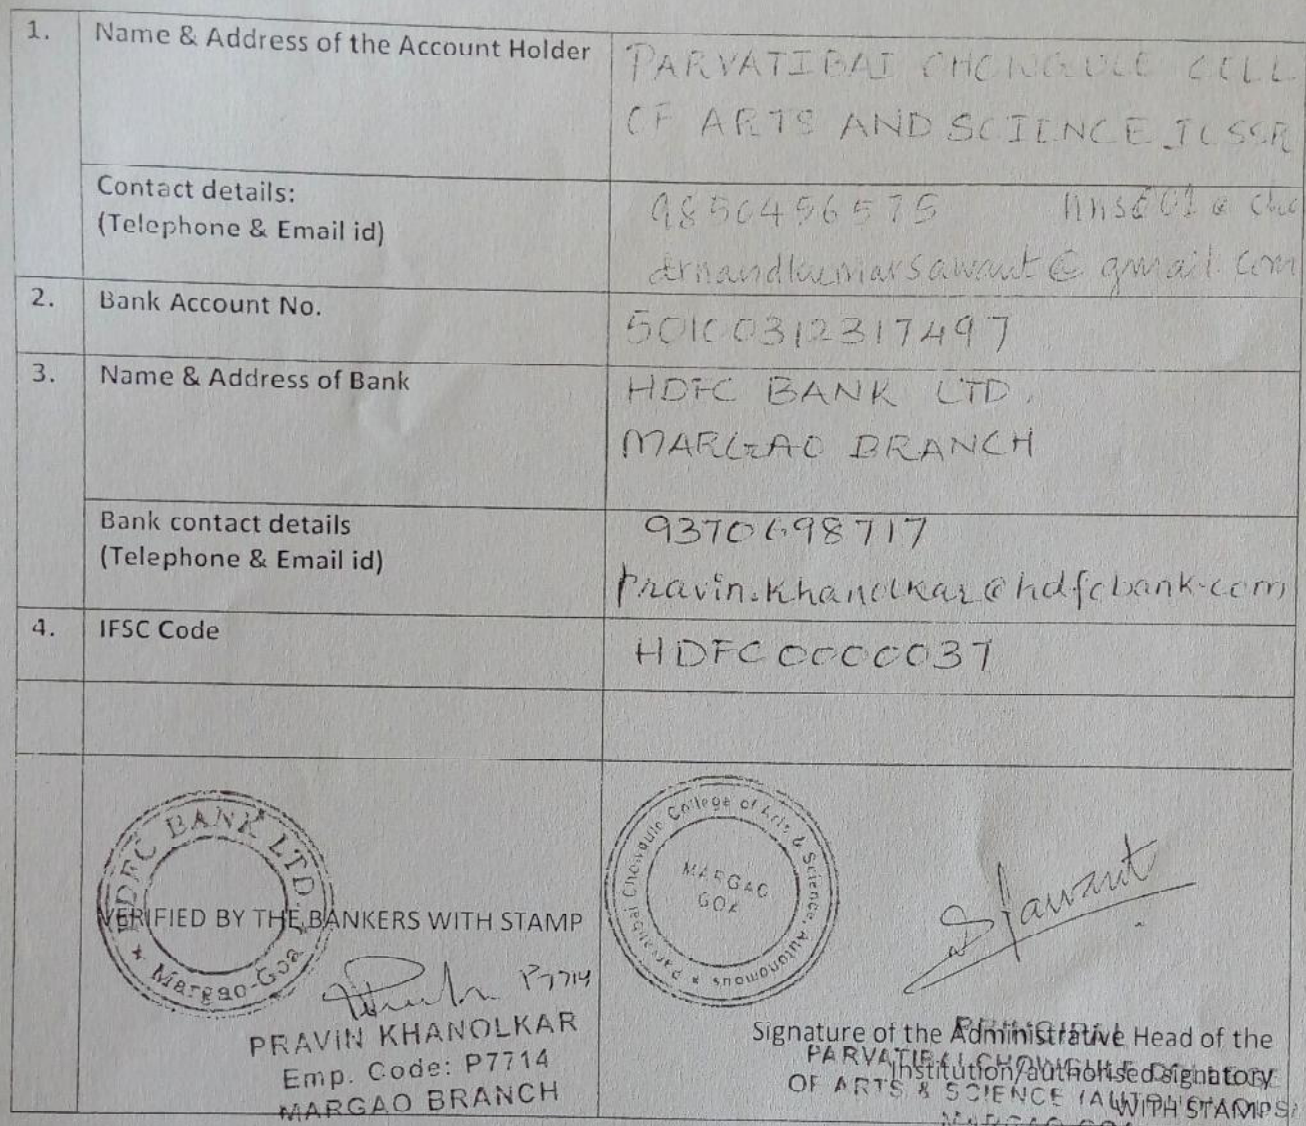 1. Name & Address of the Account Holder
PARVATIBAI CHOWGULE COLL
OF ARTS AND SCIENCE ICSSR
Contact details:
(Telephone & Email id)
9850456575
@gmail.com
2. Bank Account No.
50100312317497
3. Name & Address of Bank
HDFC BANK LTD.
MARGAO BRANCH
Bank contact details
(Telephone & Email id)
9370698717
Pravin.Khanolkar@hdfcbank.com
4. IFSC Code
HDFC0000037
HDFC BANK LTD.
* Margao-Goa
VERIFIED BY THE BANKERS WITH STAMP
P7714
PRAVIN KHANOLKAR
Emp. Code: P7714
MARGAO BRANCH
Parvatibai Chowgule College of Arts & Science, Autonomous *
MARGAO
GOA
Sawant
Signature of the Administrative Head of the
PRINCIPAL
Institution/authorised signatory
PARVATIBAI CHOWGULE
WITH STAMPS
OF ARTS & SCIENCE